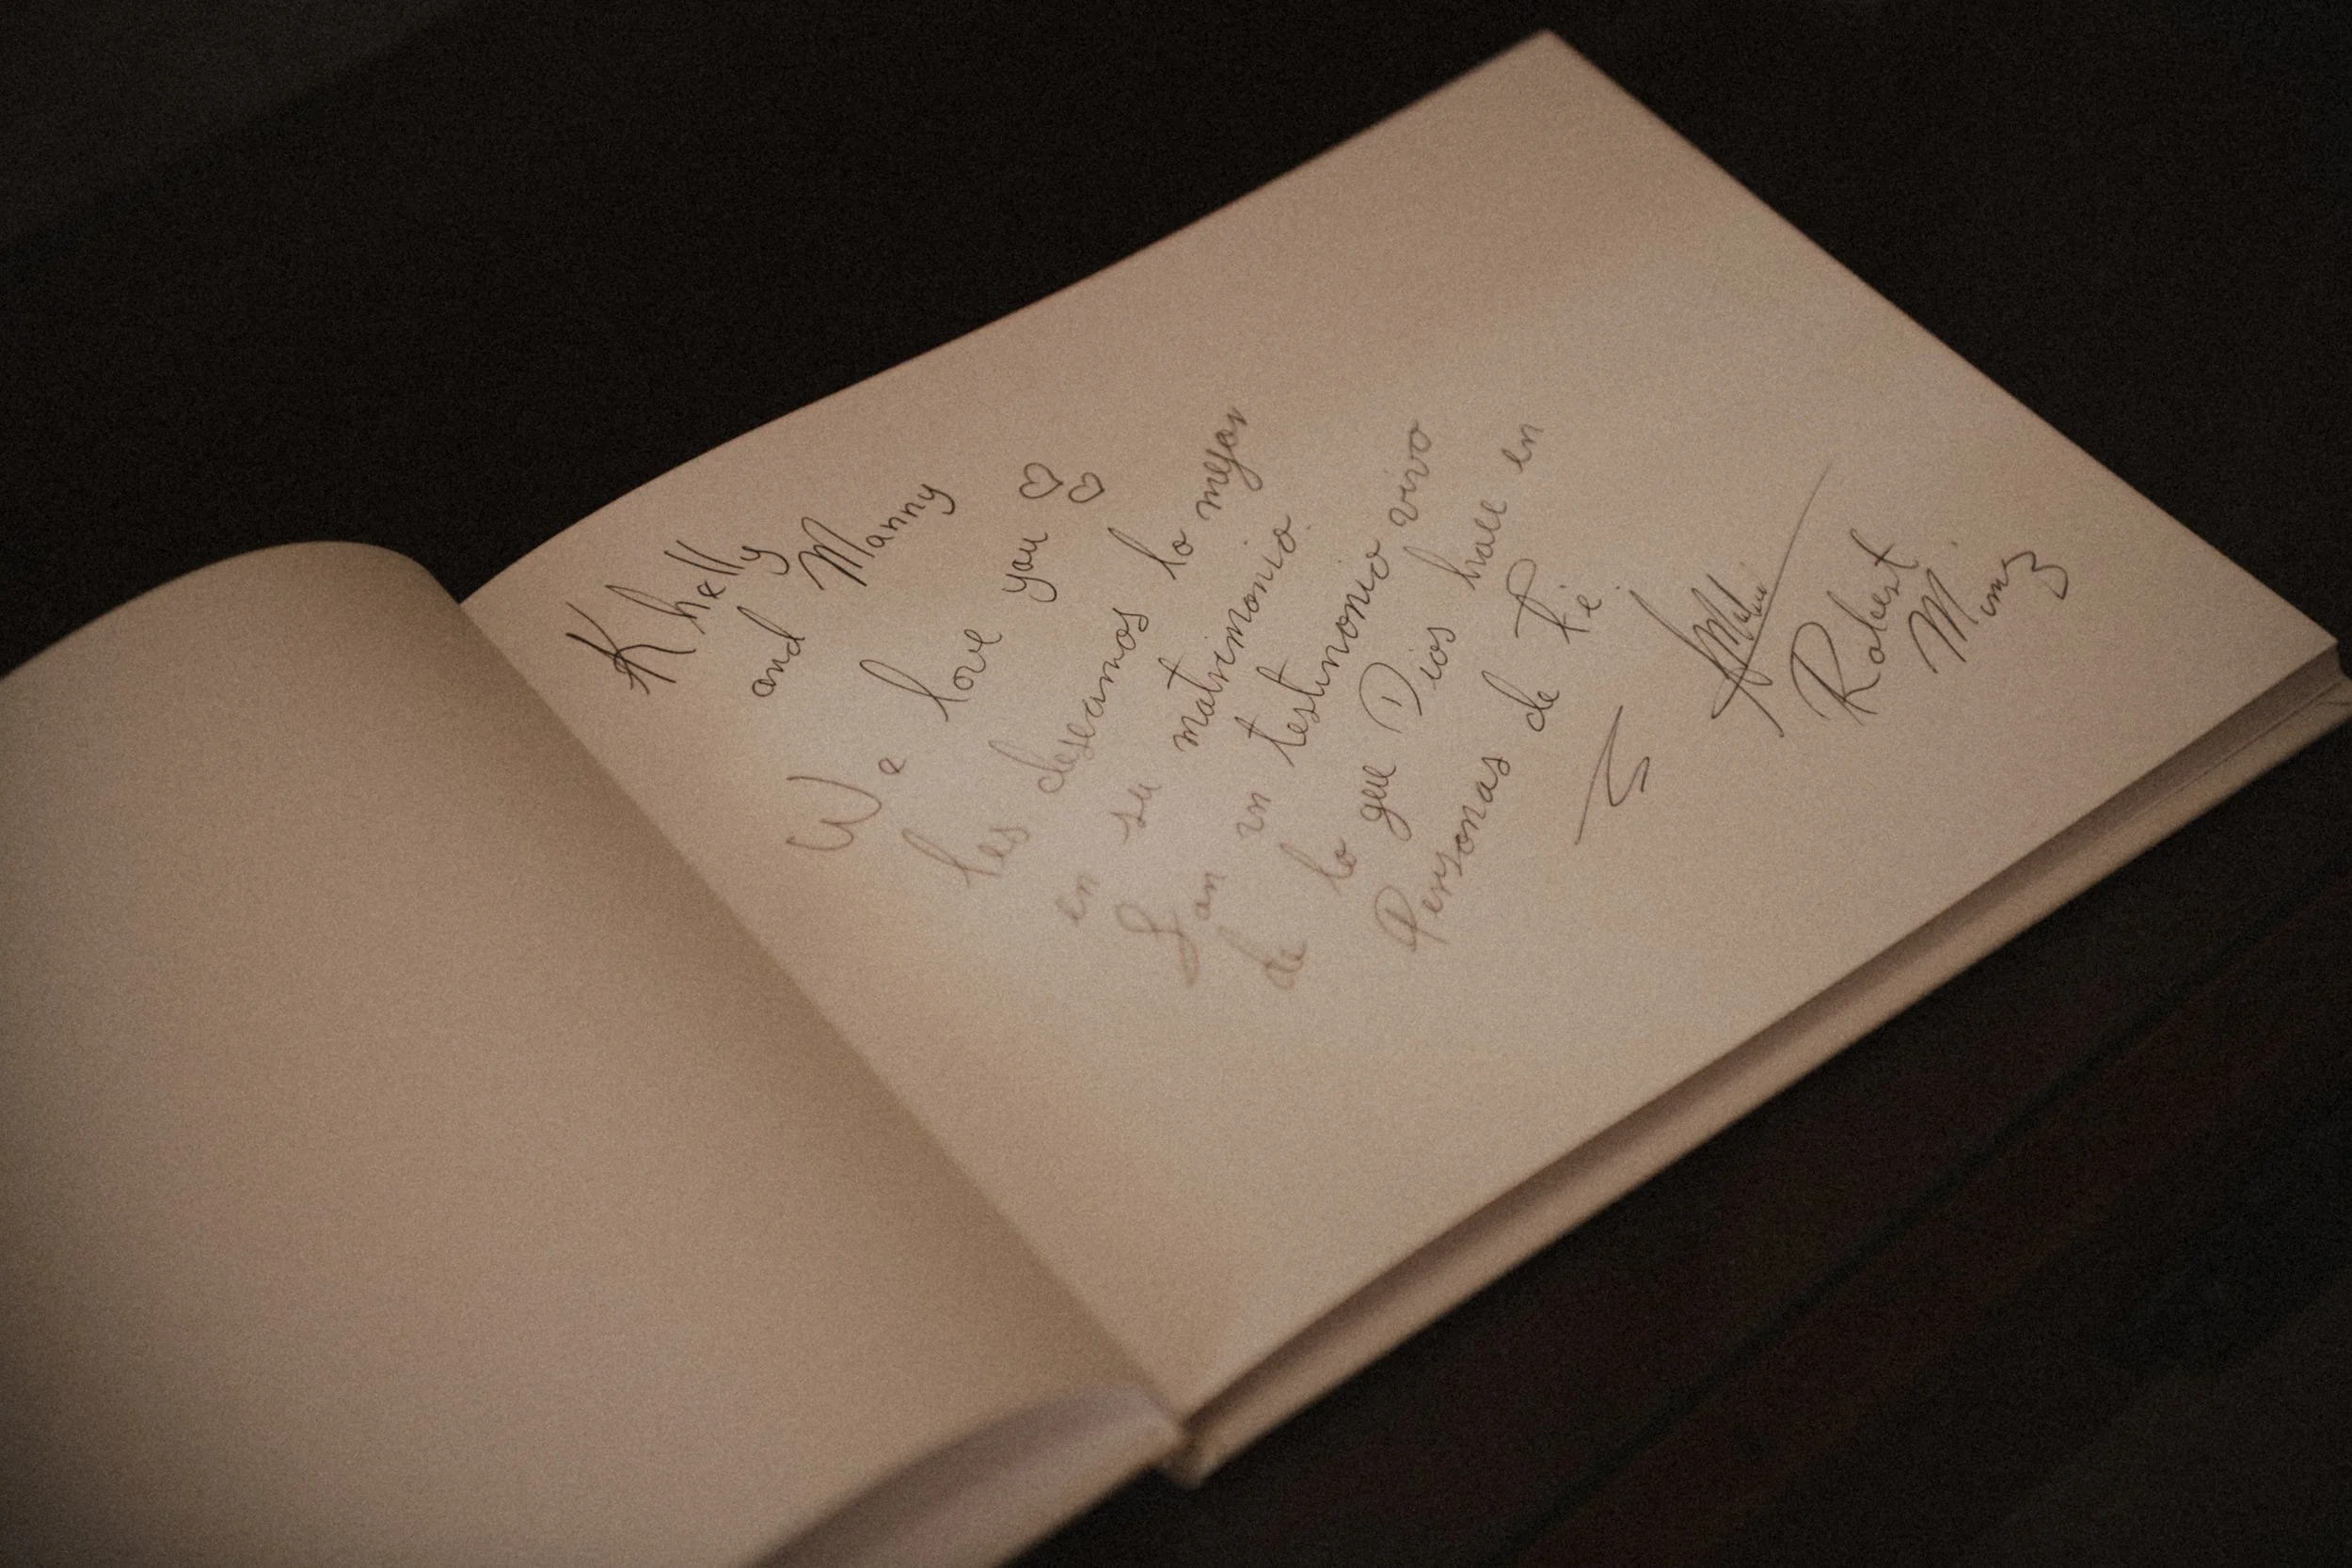 Khelly
and Manny
We love you ♡♡
les deseamos lo mejor
en su matrimonio.
San un testimonio vivo
de lo que Dios hace en
Personas de Fé.
Robert
M.